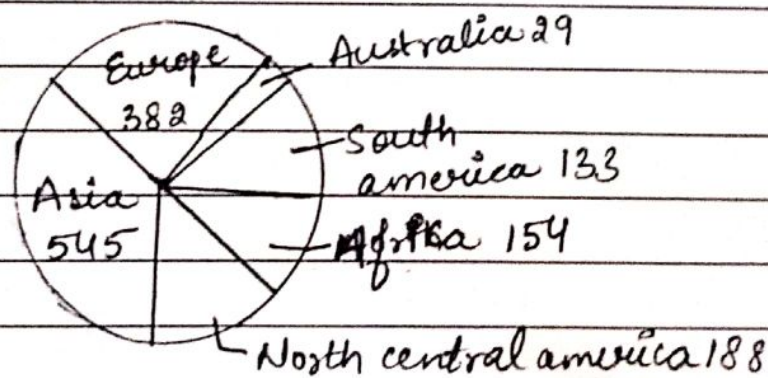 Europe
382
Australia 29
South
america 133
Asia
545
Afrika 154
North central america 188